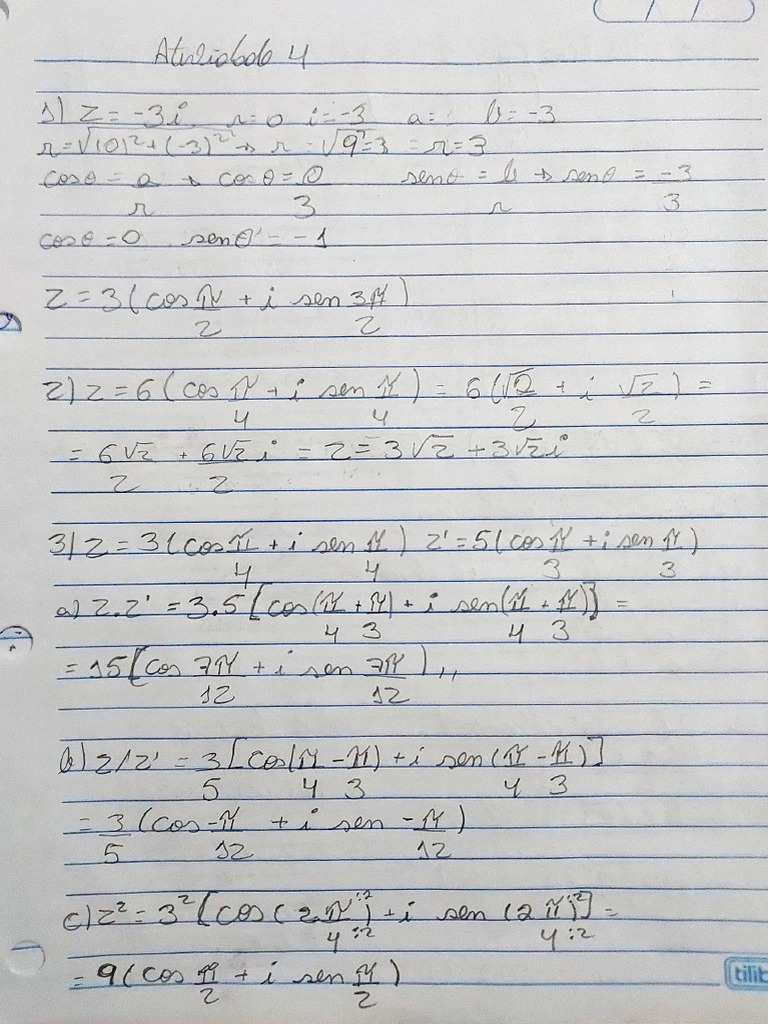 Atividade 4
1) z = -3i r=0 i=-3 a= b=-3
r=√(0)²+(-3)² → r = √9=3 = r=3
cosθ = a/r → cosθ = 0/3 senθ = b/r → senθ = -3/3
cosθ=0 senθ = -1
z = 3(cos π/2 + i sen 3π/2)
2) z = 6(cos π/4 + i sen π/4) = 6(√2/2 + i √2/2) =
= 6√2/2 + 6√2/2 i = z = 3√2 + 3√2i
3) z = 3(cos π/4 + i sen π/4) z' = 5(cos π/3 + i sen π/3)
a) z.z' = 3.5[cos(π/4 + π/3) + i sen(π/4 + π/3)] =
= 15[cos 7π/12 + i sen 7π/12),,
b) z/z' = 3/5[cos(π/4 - π/3) + i sen(π/4 - π/3)]
= 3/5(cos -π/12 + i sen -π/12)
c) z² = 3²[cos(2π:2/4:2) + i sen(2π:2/4:2] =
= 9(cos π/2 + i sen π/2)
tilib